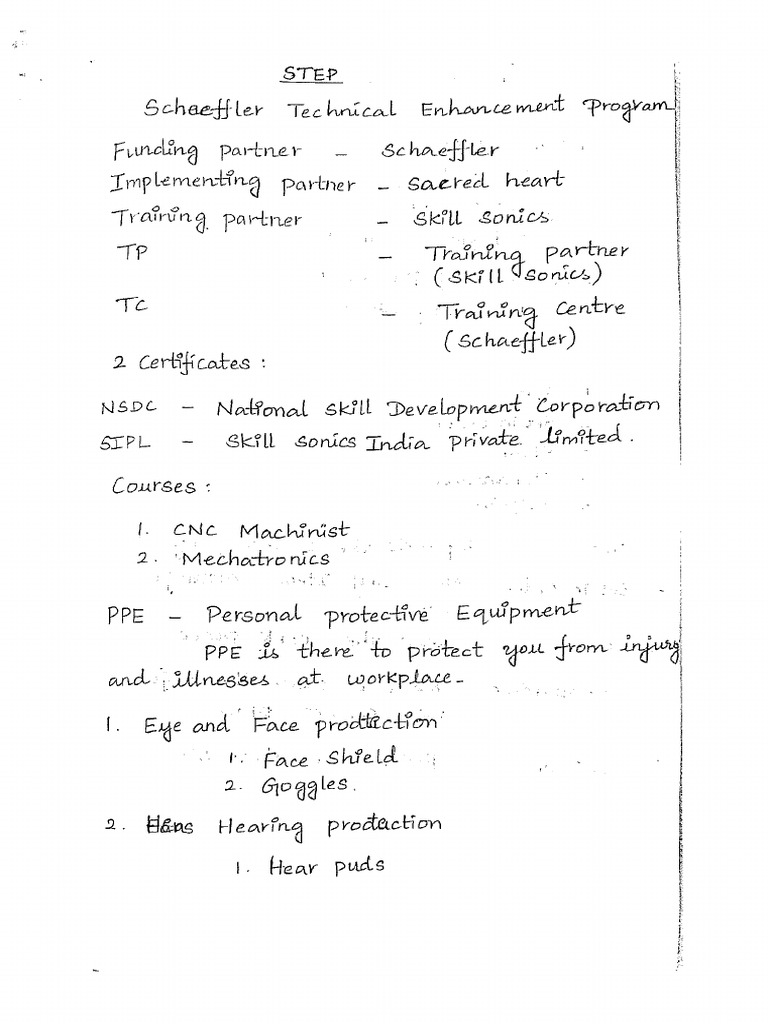 STEP
Schaeffler Technical Enhancement Program
Funding partner - Schaeffler
Implementing partner - sacred heart
Training partner - Skill Sonics
TP - Training partner
(Skill Sonics)
TC - Training Centre
(Schaeffler)
2 Certificates :
NSDC - National Skill Development Corporation
SIPL - Skill sonics India private limited.
Courses :
1. CNC Machinist
2. Mechatronics
PPE - Personal protective Equipment
PPE is there to protect you from injury
and illnesses at workplace-
1. Eye and Face prodtection
1. Face Shield
2. Goggles.
2. Hearing prodtection
1. Hear puds